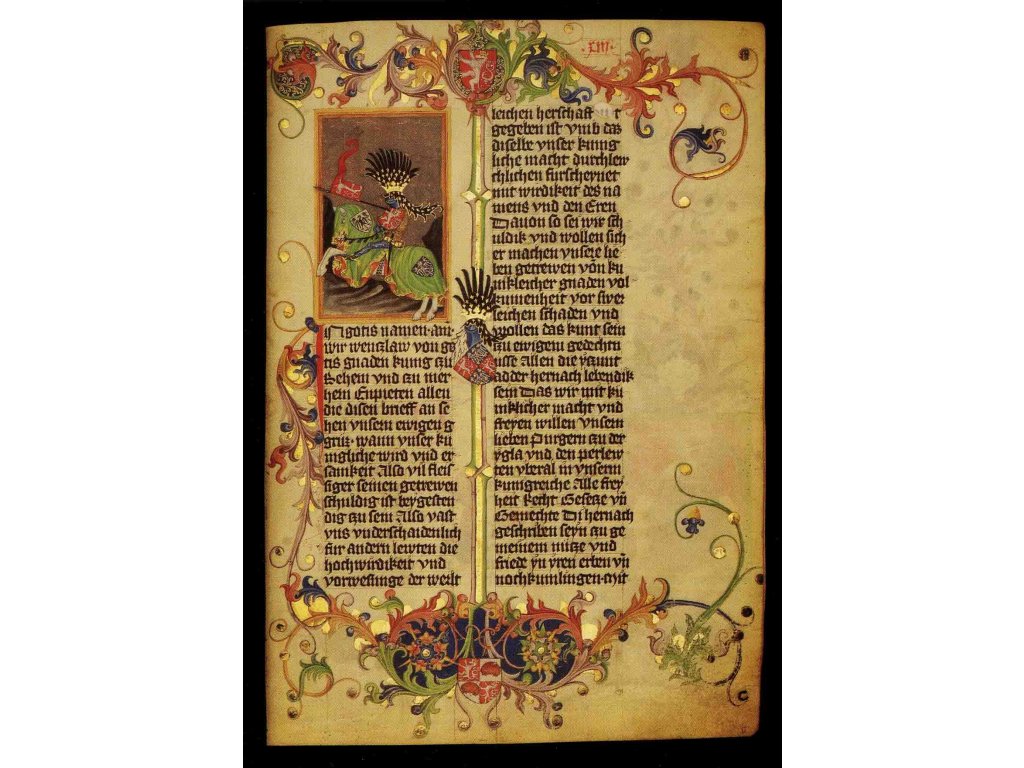 .xiii.
N gotis namen · am̄
wir wenzlaw von go
tis gnaden kunig czu
Behem vnd czu mer
hern Enpieten allen
die disen brieff an se
hen vnsern ewigen g
gruz · wann vnser ku
nigliche wird vnd er
samkeit Also vil fleis
siger seinen getrewen
schuldig ist beygesten
dig czu sein Also vast
vns vnderschaidenlich
fur andern lewten die
hochwirdikeit vnd
vorwesunge der werlt
leichen herschaft
gegeben ist vmb das
diselbe vnser kunig
liche macht durchlew
chtlichen furscheynet
mit wirdikeit des na
mens vnd den Eren
Dauon so sei wir sch
uldik vnd wollen sich
er machen vnsere lie
ben getrewen von ku
nikleicher gnaden vol
kumenheit vor
leichen schaden vnd
wollen das kunt sein
czu ewigem gedechtn
usse Allen die yczunt
adder hernach lebendik
sein Das wir mit ku
niklicher macht vnd
freyen willen vnsern
lieben Purgern czu der
ygla vnd den perklew
ten vberal in vnserm
kunigreiche Alle frey
heit Recht Gesetze vn̄
Gemechte Di hernach
geschriben seyn zu ge
meinem nutze vnd
friede zu yren erben vn̄
nochkumlingen · Mit